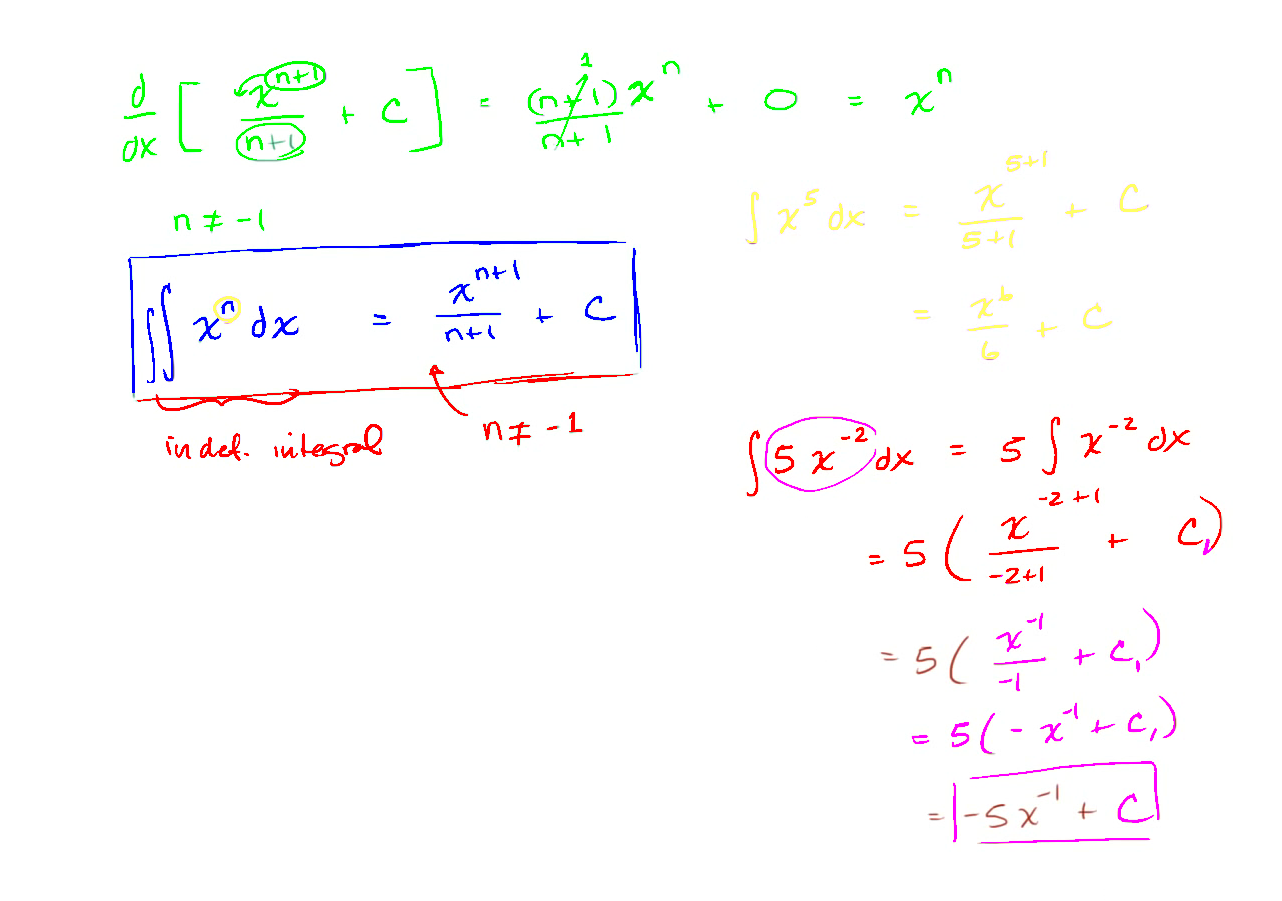 d/dx [ x^(n+1)/(n+1) + C ] = (n+1)x^n/(n+1) + 0 = x^n
1
n ≠ -1
∫∫ x^n dx = x^(n+1)/(n+1) + C
indef. integral
n ≠ -1
∫ x^5 dx = x^(5+1)/(5+1) + C
= x^6/6 + C
∫ 5 x^-2 dx = 5 ∫ x^-2 dx
= 5 ( x^(-2+1)/(-2+1) + C₁)
= 5 ( x^-1/-1 + C₁)
= 5 ( - x^-1 + C₁)
= -5x^-1 + C